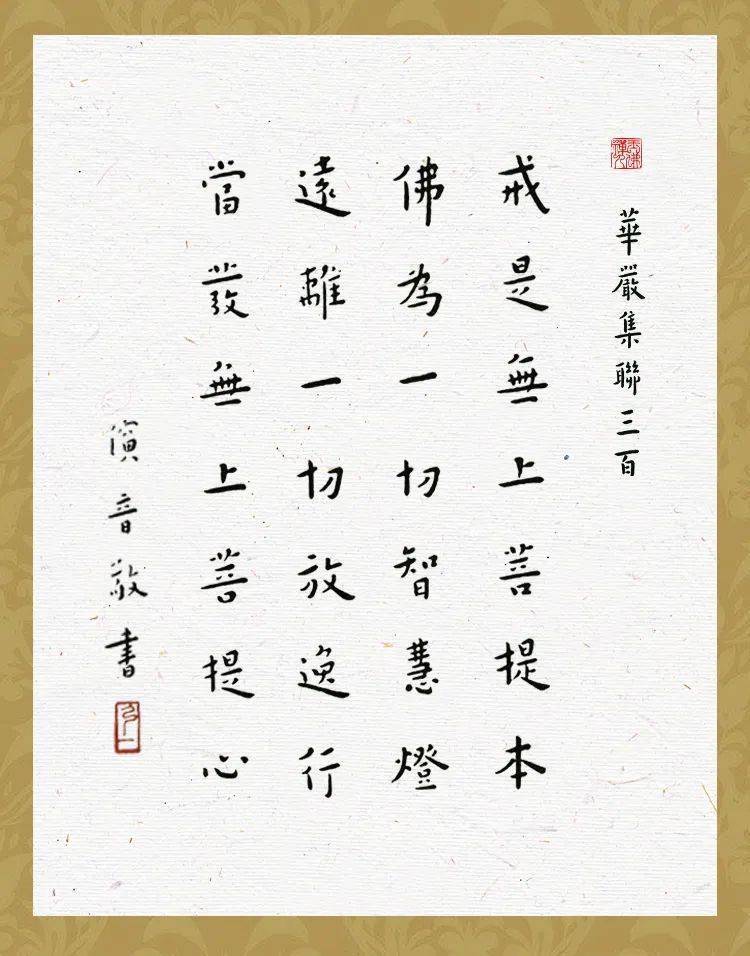 華嚴集聯三百
戒是無上菩提本
佛為一切智慧燈
遠離一切放逸行
當發無上菩提心
音敬書